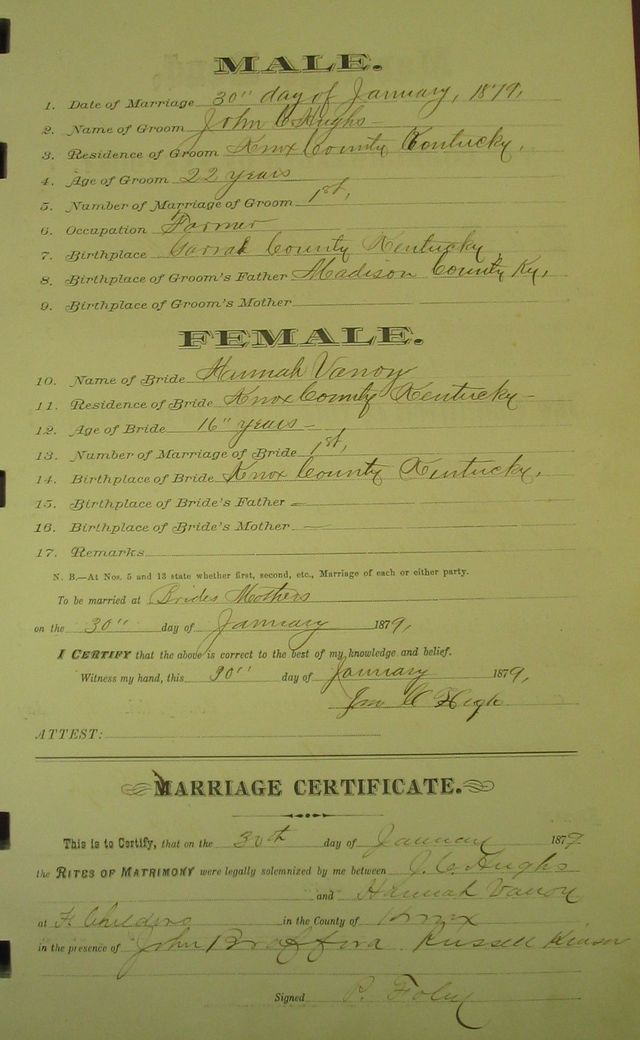 MALE.
1. Date of Marriage 30" day of January, 1879,
2. Name of Groom John C Hughs
3. Residence of Groom Knox County Kentucky,
4. Age of Groom 22 years
5. Number of Marriage of Groom 1st,
6. Occupation Farmer
7. Birthplace Garrad County Kentucky,
8. Birthplace of Groom's Father Madison County Ky,
9. Birthplace of Groom's Mother
FEMALE.
10. Name of Bride Hannah Vanoy
11. Residence of Bride Knox County Kentucky
12. Age of Bride 16" years
13. Number of Marriage of Bride 1st,
14. Birthplace of Bride Knox County Kentucky,
15. Birthplace of Bride's Father
16. Birthplace of Bride's Mother
17. Remarks
N. B.—At Nos. 5 and 13 state whether first, second, etc., Marriage of each or either party.
To be married at Brides Mothers
on the 30" day of January 1879,
I CERTIFY that the above is correct to the best of my knowledge and belief.
Witness my hand, this 30" day of January 1879,
Jno C Hugh
ATTEST:
MARRIAGE CERTIFICATE.
This is to Certify, that on the 30th day of January 1879
the RITES OF MATRIMONY were legally solemnized by me between J. C. Hughs
and Hannah Vanoy
at F. Childers in the County of Knox
in the presence of John Brafford Russell
Signed P. Foley